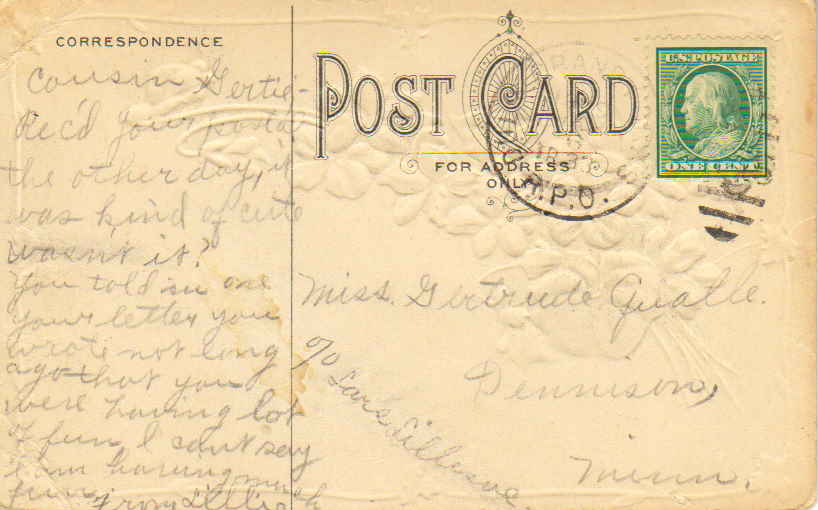 CORRESPONDENCE
Cousin Gertie-
Rec'd your postal
the other day, it
was kind of cute
wasn't it?
You told in one
your letter you
wrote not long
ago that you
were having lot
of fun, I can't say
I am having much
fun. From Lillie
POST CARD
FOR ADDRESS
ONLY
R.P.O.
U.S. POSTAGE
ONE CENT
Miss. Gertrude Qualle.
c/o Lars Lillesve.
Dennison,
Minn.